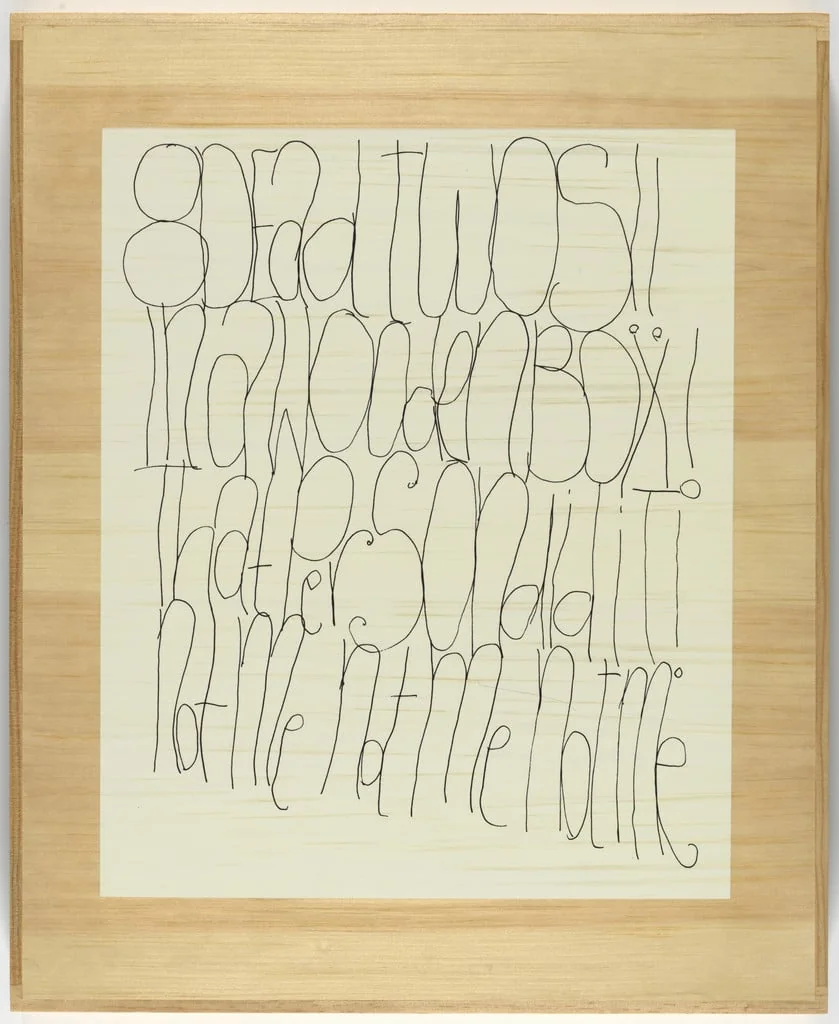 IT WOS !!
IN a BOX!
THat PerSON did iT!
Not me Not me Not me